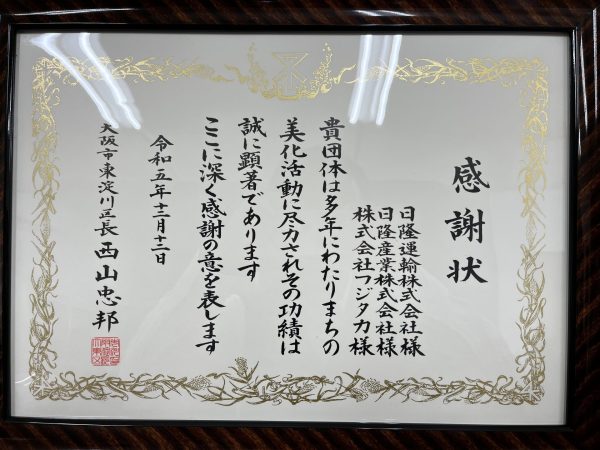 感謝状
日隆運輸株式会社様
日隆産業株式会社様
株式会社フジタカ様
貴団体は多年にわたりまちの
美化活動に尽力されその功績は
誠に顕著であります
ここに深く感謝の意を表します
令和五年十二月十二日
大阪市東淀川区長 西山忠邦